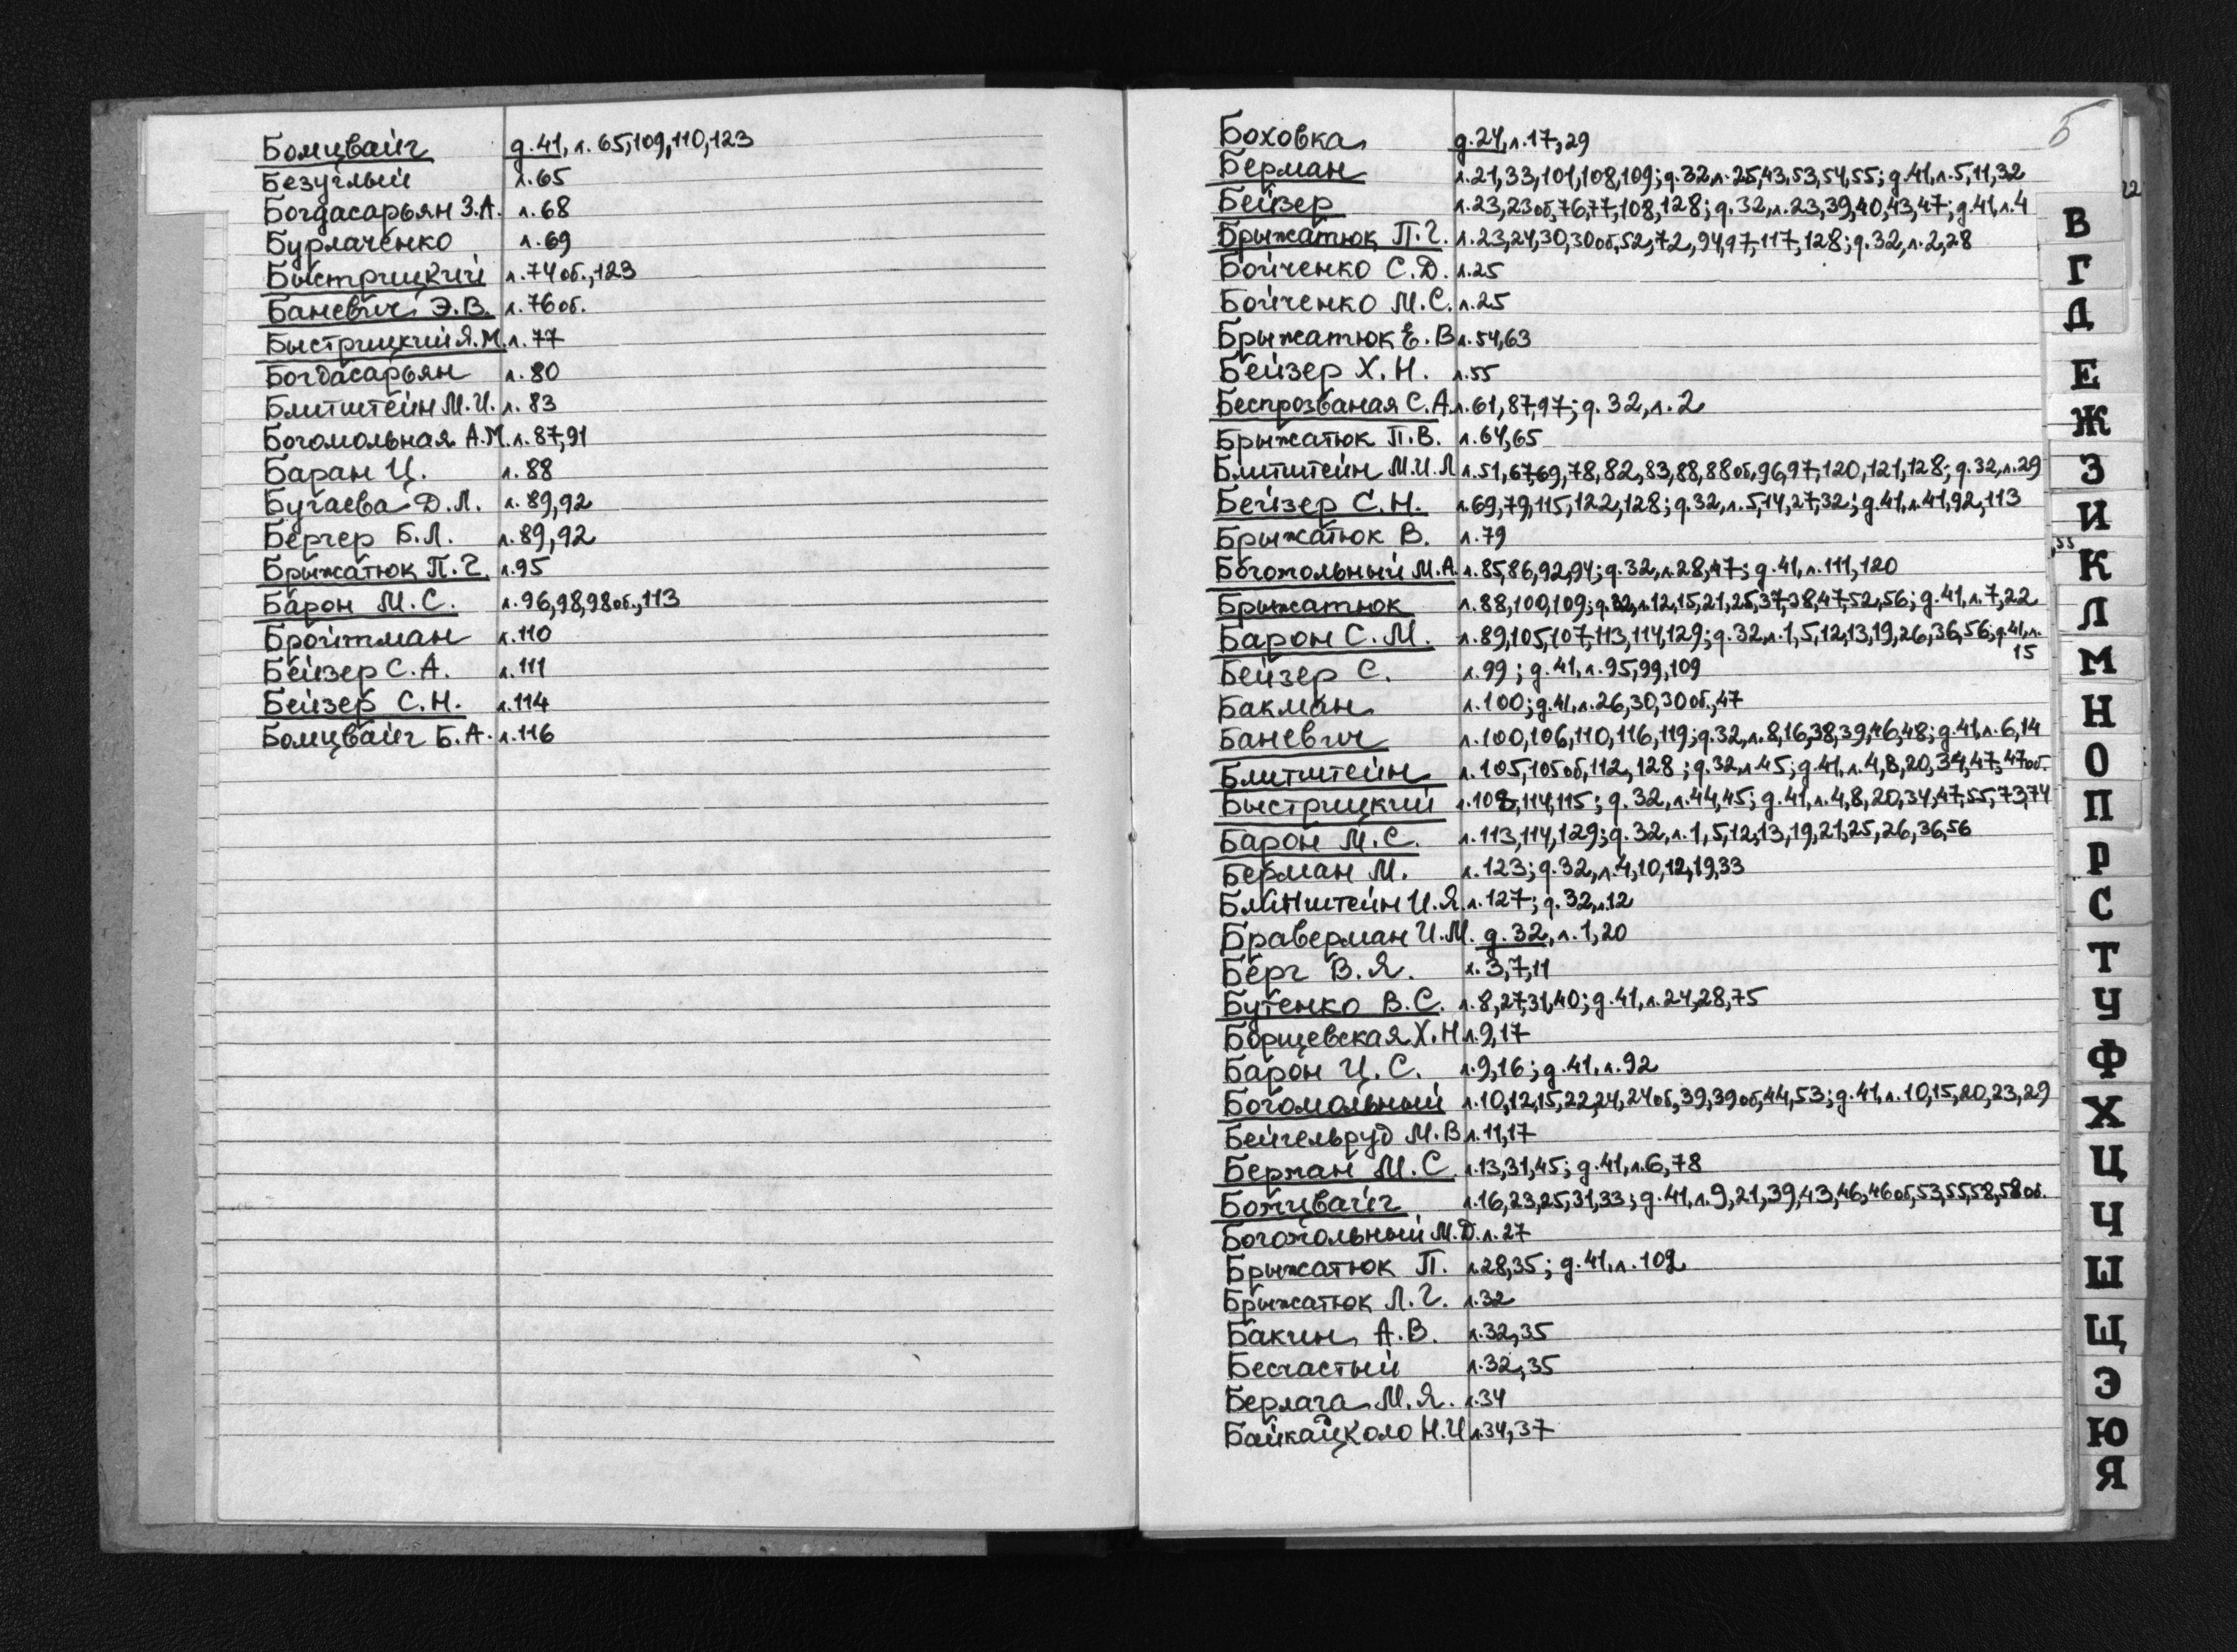 Бомцвайг д.41, л. 65,109,110,123
Безуглый л.65
Богдасарьян З.А. л.68
Бурлаченко л.69
Быстрицкий л.74об.,123
Баневич Э.В. л.76об.
Быстрицкий Я.М. л.77
Богдасарьян л.80
Блитштейн М.И. л.83
Богомольная А.М. л.87,91
Баран Ц. л.88
Бугаева Д.Л. л.89,92
Бергер Б.Л. л.89,92
Брыжатюк П.Г. л.95
Барон М.С. л.96,98,98об.,113
Бройтман л.110
Бейзер С.А. л.111
Бейзер С.Н. л.114
Бомцвайг Б.А. л.116
Б
Боховка д.24,л.17,29
Берман л.21,33,101,108,109;д.32,л.25,43,53,54,55;д.41,л.5,11,32
Бейзер л.23,23об,76,77,108,128;д.32,л.23,39,40,43,47;д.41,л.4
Брыжатюк П.Г. л.23,24,30,30об,52,72,94,97,117,128;д.32,л.2,28
Бойченко С.Д. л.25
Бойченко М.С. л.25
Брыжатюк Е.В л.54,63
Бейзер Х.Н. л.55
Беспрозваная С.А. л.61,87,97;д.32,л.2
Брыжатюк П.В. л.64,65
Блитштейн М.И.Л л.51,67,69,78,82,83,88,88об,96,97,120,121,128;д.32,л.29
Бейзер С.Н. л.69,79,115,122,128;д.32,л.5,14,27,32;д.41,л.41,92,113
Брыжатюк В. л.79
Богомольный М.А. л.85,86,92,94;д.32,л.28,47;д.41,л.111,120
Брыжатюк л.88,100,109;д.32,л.12,15,21,25,37,38,47,52,56;д.41,л.7,22
Барон С.М. л.89,105,107,113,114,129;д.32,л.1,5,12,13,19,26,36,56;д.41,л.
15
Бейзер С. л.99;д.41,л.95,99,109
Бакман л.100;д.41,л.26,30,30об.,47
Баневич л.100,106,110,116,119;д.32,л.8,16,38,39,46,48;д.41,л.6,14
Блитштейн л.105,105об,112,128;д.32,л.45;д.41,л.4,8,20,34,47,47об.
Быстрицкий л.108,114,115;д.32,л.44,45;д.41,л.4,8,20,34,47,55,73,74
Барон М.С. л.113,114,129;д.32,л.1,5,12,13,19,21,25,26,36,56
Берман М. л.123;д.32,л.4,10,12,19,33
Блинштейн И.Я. л.127;д.32,л.12
Браверман И.М. д.32,л.1,20
Берг В.Я. л.3,7,11
Бутенко В.С. л.8,27,31,40;д.41,л.24,28,75
Борщевская Х.Н л.9,17
Барон Ц.С. л.9,16;д.41,л.92
Богомольный л.10,12,15,22,24,24об,39,39об,44,53;д.41,л.10,15,20,23,29
Бейгельруд М.В л.11,17
Берман М.С. л.13,31,45;д.41,л.6,78
Бомцвайг л.16,23,25,31,33;д.41,л.9,21,39,43,46,46об,53,55,58,58об.
Богомольный М.Д. л.27
Брыжатюк П. л.28,35;д.41,л.109
Брыжатюк Л.Г. л.32
Бакин А.В. л.32,35
Бесчастый л.32,35
Берлага М.Я. л.34
Байкацколо Н.И л.34,37
В
Г
Д
Е
Ж
З
И
К
Л
М
Н
О
П
Р
С
Т
У
Ф
Х
Ц
Ч
Ш
Щ
Э
Ю
Я